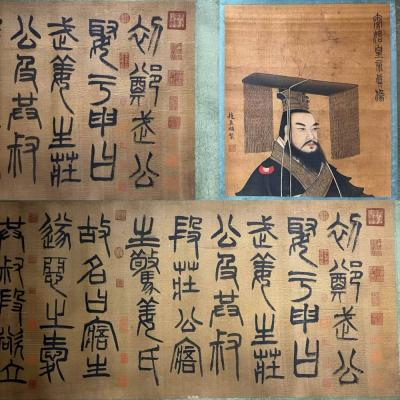 初鄭武公
娶于申曰
武姜生莊
公及共叔
秦始皇帝真像
初鄭武公
娶于申曰
武姜生莊
公及共叔
段莊公寤
生驚姜氏
故名曰寤生
遂惡之愛
共叔段欲立